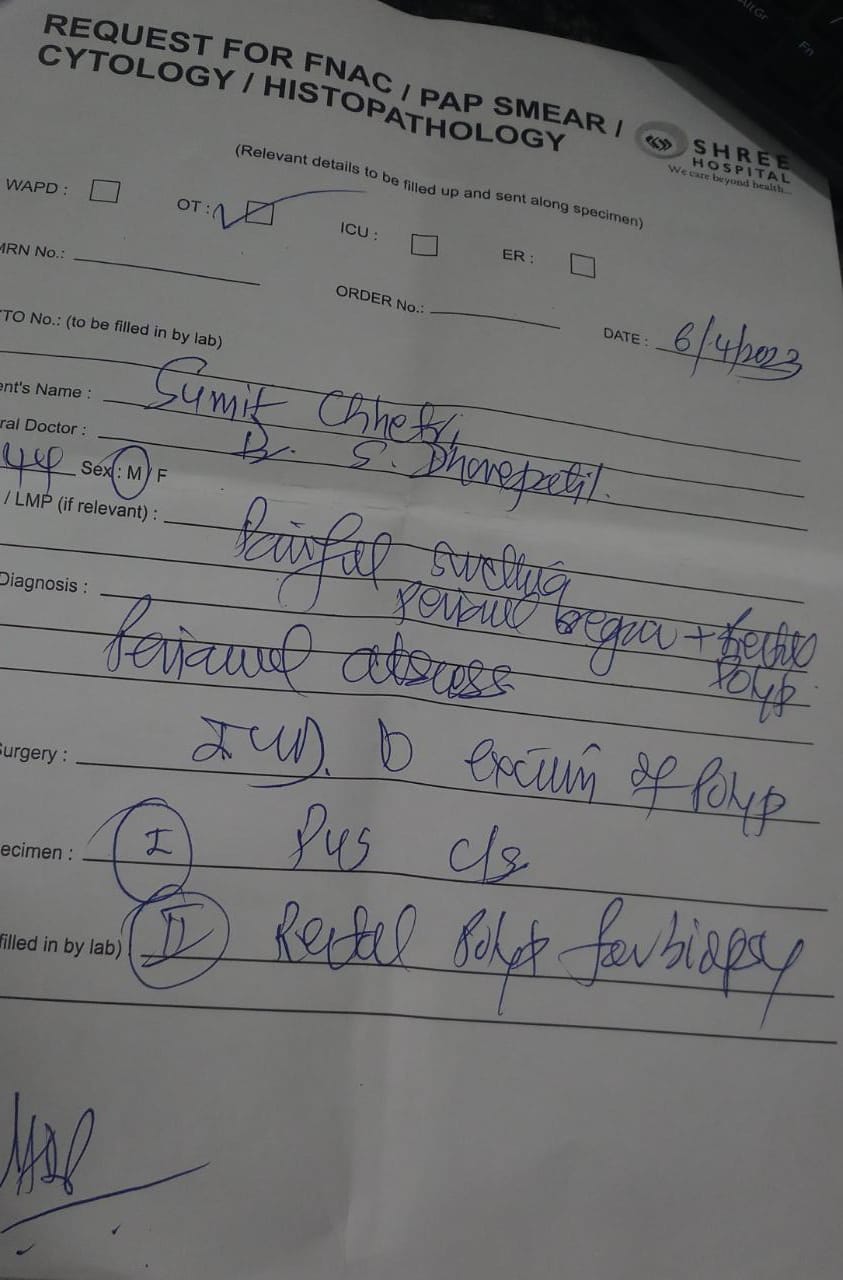 AltGr
Fn
REQUEST FOR FNAC / PAP SMEAR /
CYTOLOGY / HISTOPATHOLOGY
SHREE
HOSPITAL
We care beyond health...
(Relevant details to be filled up and sent along specimen)
WAPD :
OT :
ICU :
ER :
MRN No.:
ORDER No.:
DATE : 6/4/2023
TO No.: (to be filled in by lab)
ent's Name : Sumit Chhetri
ral Doctor : Dr. S.
44 Sex : M / F
/ LMP (if relevant) : Painful swelling
perianal + Rectal
Polyp
Diagnosis : Perianal abscess
Surgery : excision of Polyp
ecimen : I Pus c/s
filled in by lab) II Rectal Polyp for biopsy